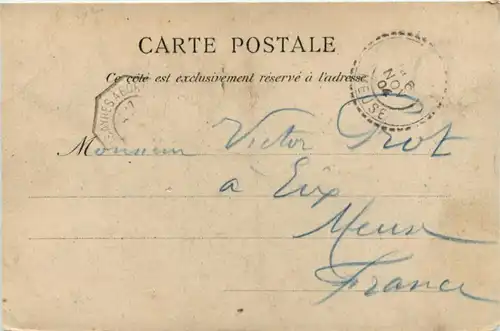 CARTE POSTALE
Ce côté est exclusivement réservé à l'adresse
6
NOV
04
Monsieur Victor Prot
à Eix
Meuse
France